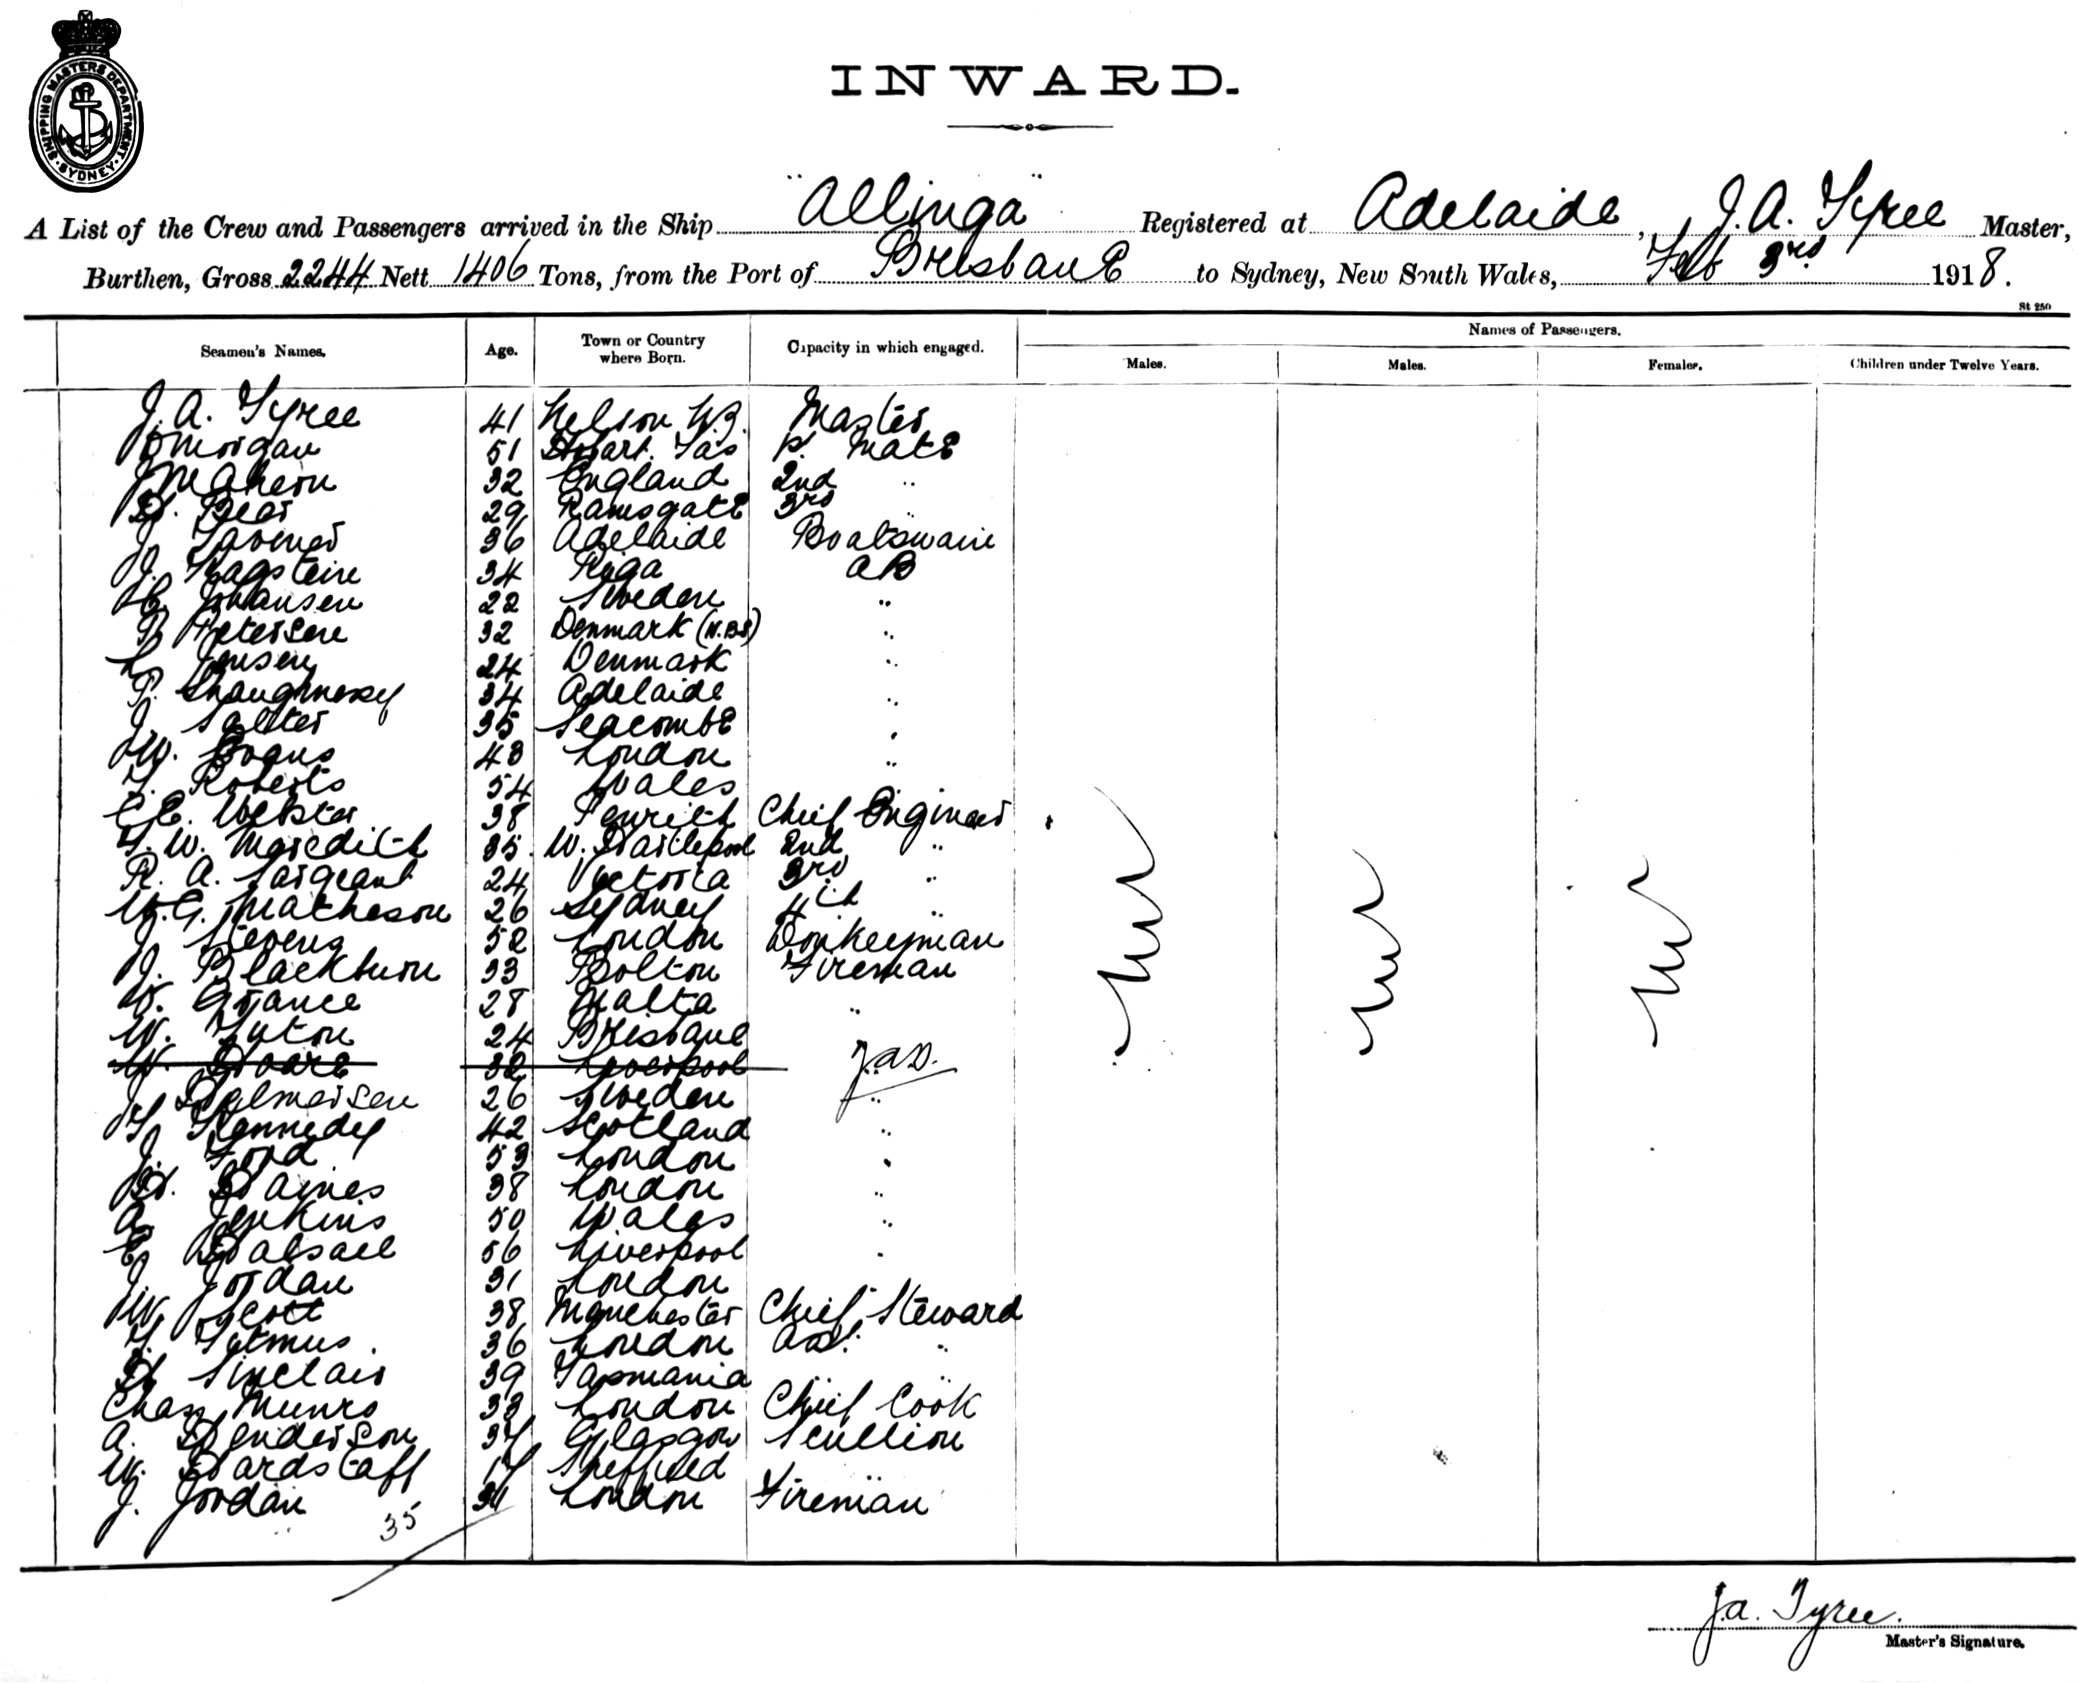 SHIPPING MASTERS DEPARTMENT · SYDNEY ·
INWARD.
A List of the Crew and Passengers arrived in the Ship "Allinga" Registered at Adelaide, J. A. Tyree Master,
Burthen, Gross 2244 Nett 1406 Tons, from the Port of Brisbane to Sydney, New South Wales, Feb 3rd 1918.
St 250
Seamen's Names. Age. Town or Country where Born. Capacity in which engaged. Names of Passengers.
Males. Males. Females. Children under Twelve Years.
J. A. Tyree 41 Nelson N.Z. Master
Morgan 51 Hobart Tas Mate
J Mahern 32 England 2nd "
H. Bear 29 Ramsgate 3rd
J. 36 Adelaide Boatswain
J. 34 Riga AB
Johansen 22 Sweden "
P Petersen 32 Denmark (N.B.S) "
L Jensen 24 Denmark "
P. Shaughnessy 34 Adelaide "
J. Salter 35 Seacombe "
W. Evans 43 London "
T. Roberts 54 Wales
C. E. Webster 38 Penrith Chief Engineer
T. W. Meredith 35 W. Hartlepool 2nd "
R. A. Sargeant 24 Victoria 3rd "
W. G. Matheson 26 Sydney 4th "
J Stevens 52 London Donkeyman
J. Blackburn 33 Bolton Fireman
28 Malta "
W. 24 Brisbane
W. Hoare 32 Liverpool J.A.T.
J Helmersen 26 Sweden "
Kennedy 42 Scotland "
J. Ford 53 London "
H. Haines 38 London "
A Jenkins 50 Wales "
E Halsall 56 Liverpool "
J. Jordan 31 London
W Scott 38 Manchester Chief Steward
T. Titmus 36 London Ast. "
H Sinclair 39 Tasmania "
Chas Munro 33 London Chief Cook
A. Henderson 37 Glasgow Scullion
W. Hardstaff 17 Sheffield "
J. Jordan 31 London Fireman
35
J. A. Tyree.
Master's Signature.